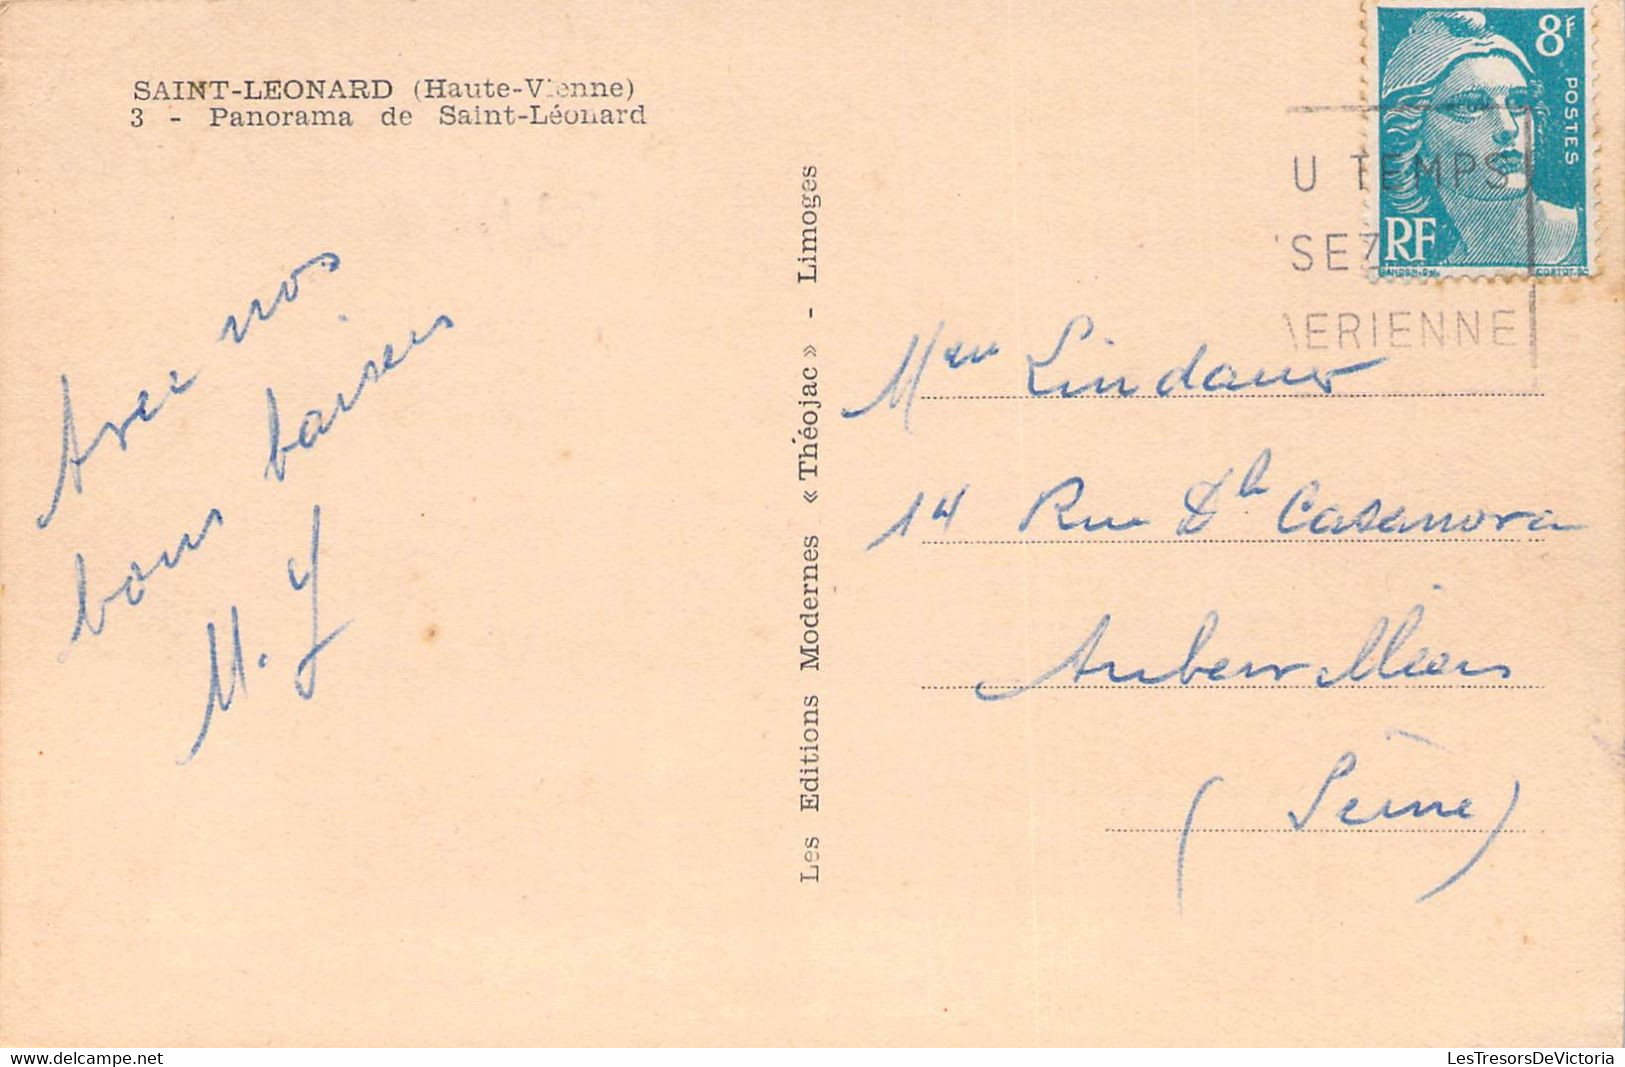 SAINT-LEONARD (Haute-Vienne)
3 - Panorama de Saint-Léonard
Avec nos
bons baisers
M. J
Les Editions Modernes « Théojac » - Limoges
8F
POSTES
RF
GANDON-Del
CORTOT-SC
U TEMPS
SEZ
AERIENNE
Lindauer
14 Rue Dle Casanova
Aubervilliers
(Seine)
LesTresorsDeVictoria